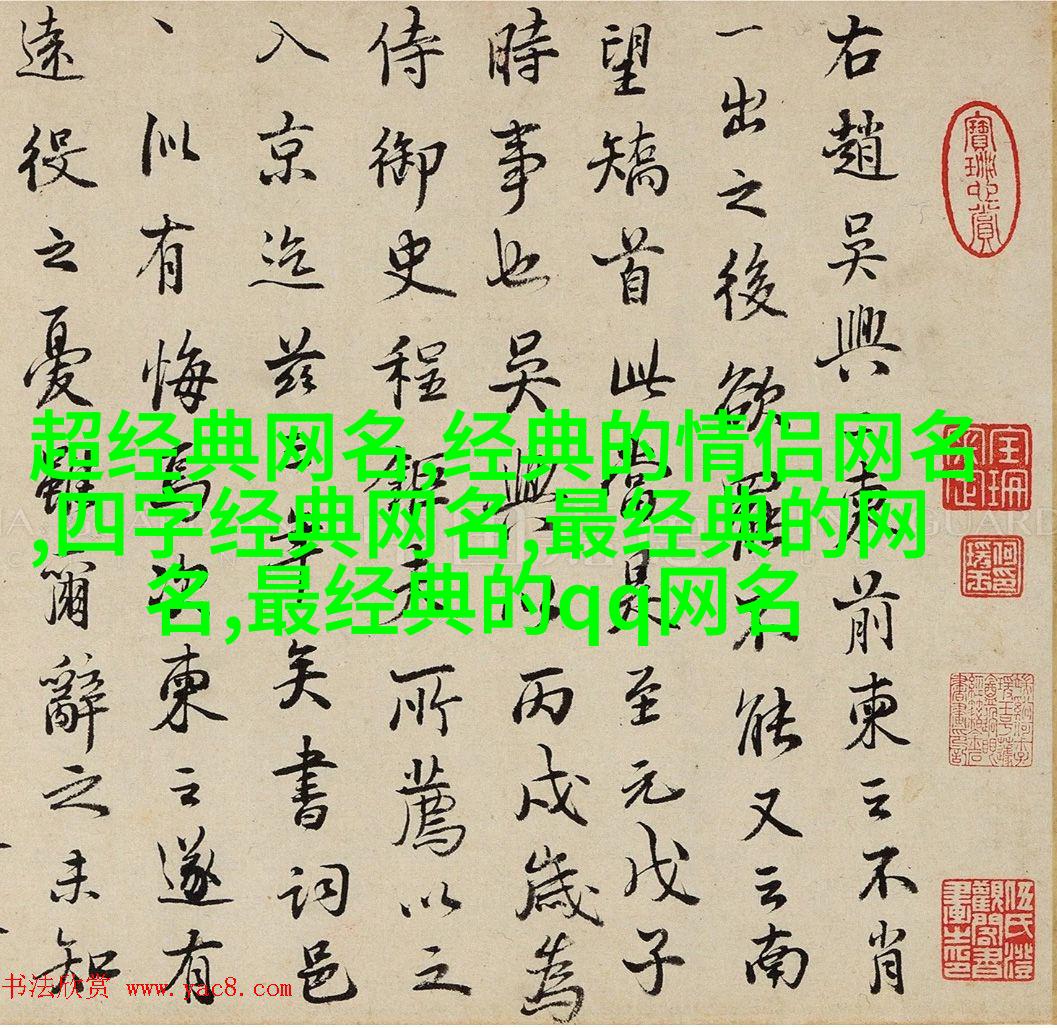 右趙吳興二柬前柬云不肖
一出之後欲罷不能又云南
望矯首此當是至元戊子
時事也吳興以丙戌歲為
侍御史程鉅夫所薦以之
入京迄茲三年矣書詞邑
丶似有悔焉次柬云遂有
遠役之憂爾辭之未知
超经典网名,经典的情侣网名
,四字经典网名,最经典的网
名,最经典的qq网名
书法欣赏 www.yac8.com